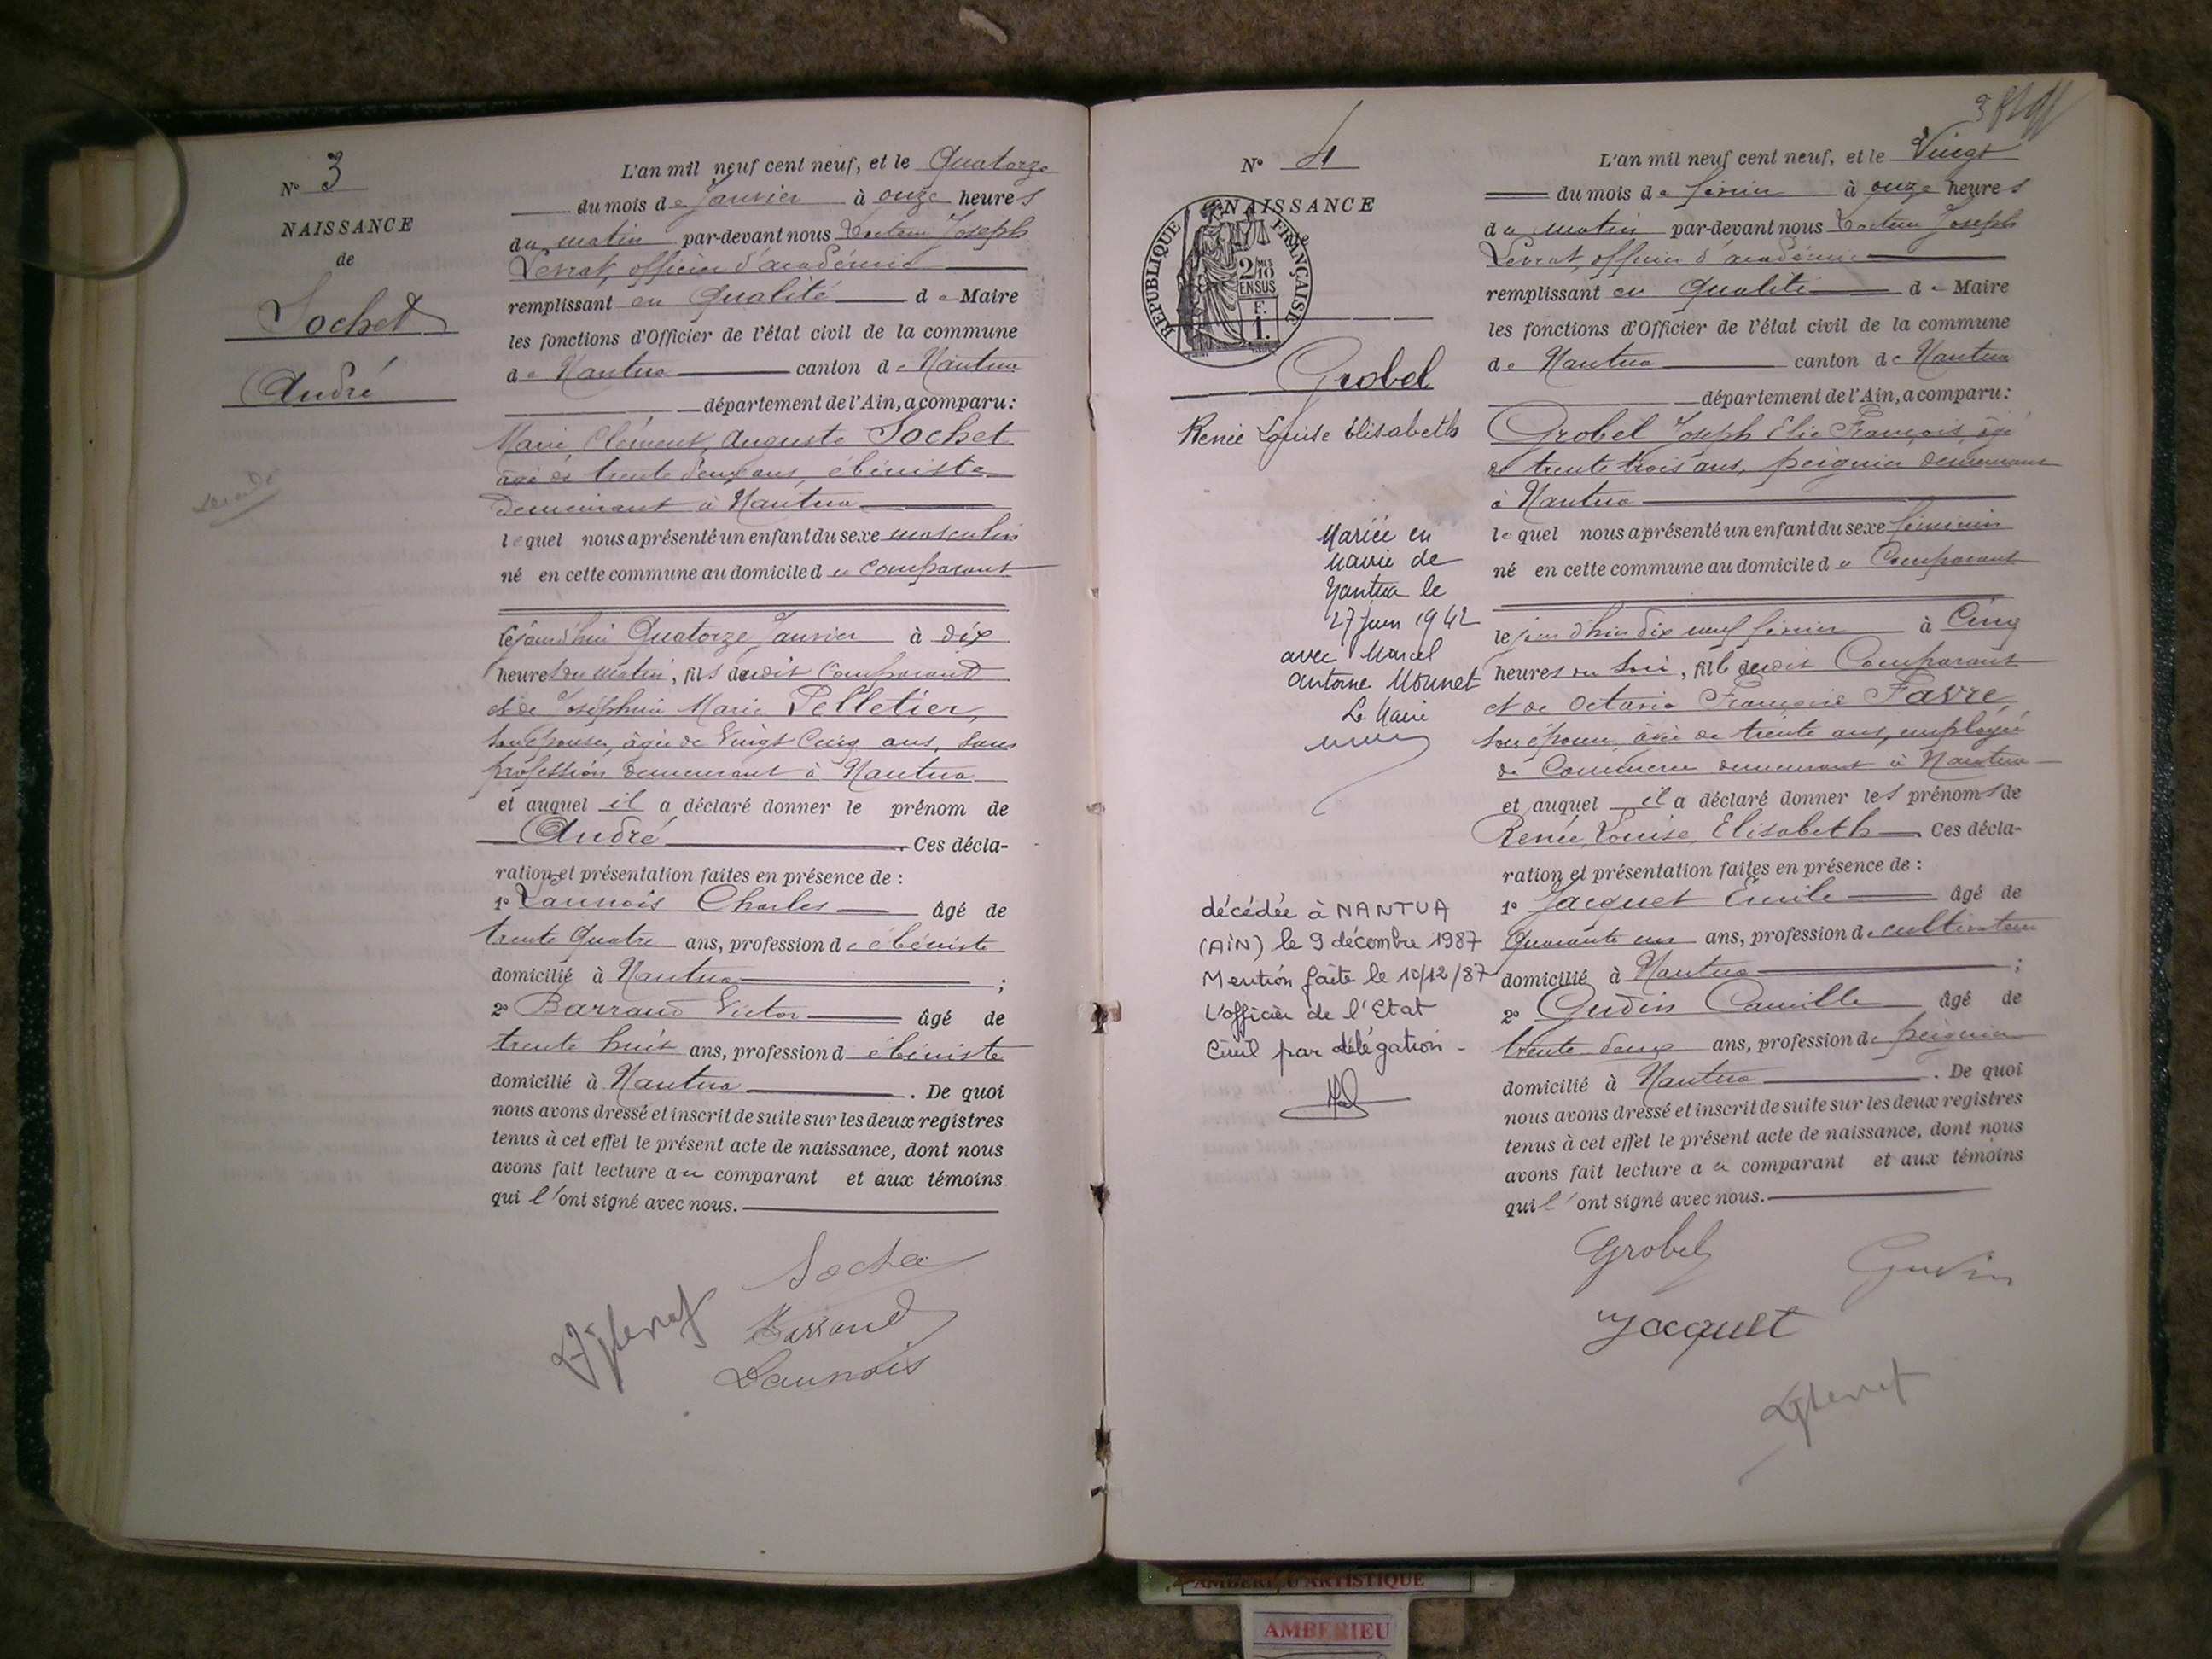 N° 3
NAISSANCE
de
Sochet
André
L'an mil neuf cent neuf, et le Quatorze
du mois de Janvier à onze heures
du matin par-devant nous Docteur Joseph
Levrat, officier d'académie
remplissant en qualité de Maire
les fonctions d'Officier de l'état civil de la commune
de Nantua canton de Nantua
département de l'Ain, a comparu :
Marie, Clément, Auguste Sochet
âgé de trente deux ans, ébéniste
demeurant à Nantua
lequel nous a présenté un enfant du sexe masculin
né en cette commune au domicile du Comparant
le jourd'hui Quatorze Janvier à dix
heures du matin, fils dudit Comparant
et de Joséphine Marie Pelletier,
son épouse, âgée de Vingt Cinq ans, sans
profession demeurant à Nantua
et auquel il a déclaré donner le prénom de
André . Ces décla-
ration et présentation faites en présence de :
1° Launois Charles âgé de
trente Quatre ans, profession d'ébéniste
domicilié à Nantua ;
2° Barraud Victor âgé de
trente huit ans, profession d'ébéniste
domicilié à Nantua . De quoi
nous avons dressé et inscrit de suite sur les deux registres
tenus à cet effet le présent acte de naissance, dont nous
avons fait lecture au comparant et aux témoins
qui l'ont signé avec nous.
Sochet
Barraud
Launois
N° 4
NAISSANCE
RÉPUBLIQUE FRANÇAISE
2/10 MES
EN SUS
F.
1.
Grobel
Renée Louise Elisabeth
Mariée en
Mairie de
Nantua le
27 juin 1942
avec Marcel
Antoine Mounet
Le Maire
décédée à NANTUA
(AIN) le 9 décembre 1987
Mention faite le 10/12/87
L'officier de l'Etat
Civil par délégation -
L'an mil neuf cent neuf, et le Vingt
du mois de février à onze heures
du matin par-devant nous Docteur Joseph
Levrat, officier d'académie
remplissant en qualité de Maire
les fonctions d'Officier de l'état civil de la commune
de Nantua canton de Nantua
département de l'Ain, a comparu :
Grobel Joseph Elie François âgé
de trente trois ans, peignier demeurant
à Nantua
lequel nous a présenté un enfant du sexe féminin
né en cette commune au domicile du Comparant
le jour d'hier dix neuf février à Cinq
heures du soir, fille dudit Comparant
et de Octavie Françoise Favre
son épouse, âgée de trente ans, employée
de Commerce demeurant à Nantua
et auquel il a déclaré donner les prénoms de
Renée, Louise, Elisabeth . Ces décla-
ration et présentation faites en présence de :
1° Jacquet Emile âgé de
Quarante un ans, profession de cultivateur
domicilié à Nantua ;
2° Gudin Camille âgé de
trente deux ans, profession de peignier
domicilié à Nantua . De quoi
nous avons dressé et inscrit de suite sur les deux registres
tenus à cet effet le présent acte de naissance, dont nous
avons fait lecture au comparant et aux témoins
qui l'ont signé avec nous.
Grobel
Gudin
Jacquet
AMBERIEU ARTISTIQUE
AMBERIEU